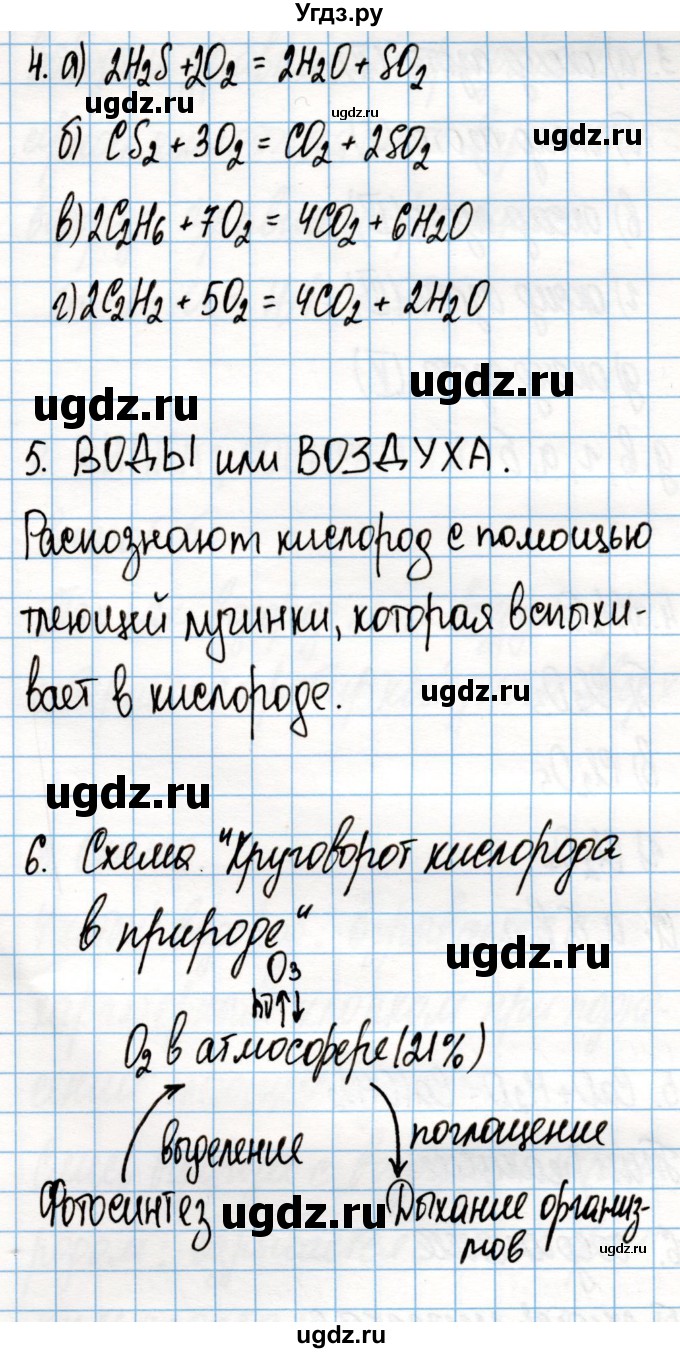 Угдз.ру
4. а) 2H₂S + 2O₂ = 2H₂O + SO₂
ugdz.ru
ugdz.ru
ugdz.ru
б) CS₂ + 3O₂ = CO₂ + 2SO₂
в) 2C₂H₆ + 7O₂ = 4CO₂ + 6H₂O
г) 2C₂H₂ + 5O₂ = 4CO₂ + 2H₂O
ugdz.ru
ugdz.ru
5. ВОДЫ или ВОЗДУХА.
Распознают кислород с помощью
тлеющей лучинки, которая вспыхи-
вает в кислороде.
ugdz.ru
ugdz.ru
6. Схема "Круговорот кислорода
в природе"
ugdz.ru
O₃
hν ↑↓
O₂ в атмосфере (21%)
выделение
поглощение
Фотосинтез
ugdz.ru
Дыхание организ-
мов
ugdz.ru
ugdz.ru